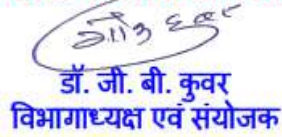 डॉ. जी. बी. कुवर
विभागाध्यक्ष एवं संयोजक